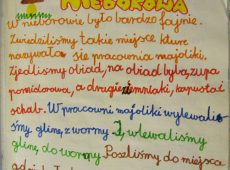 NIEBOROWA
W nieborowie było bardzo fajnie.
Zwiedziliśmy takie miejsce kture
nazywało się pracownia majoliki.
Zjedliśmy obiad, na obiad była zupa
pomidorowa, a drugie ziemniaki, kapusta i
schab. W pracowni majoliki wylewaliś
śmy glinę z wormy, wlewaliśmy
glinę do wormy. Poszliśmy do miejsca